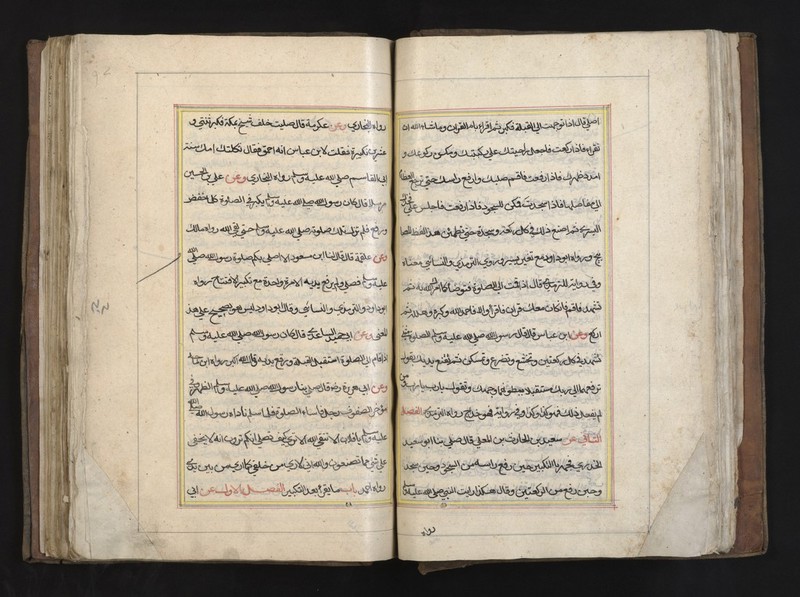 اصلي قال اذا توجهت الى القبلة فكبر ثم اقرا بام القران وما شاء الله ان
تقرا فاذا ركعت فاجعل راحتيك على ركبتيك ومكن ركوعك و
امدد ظهرك فاذا رفعت فاقم صلبك وارفع راسك حتى ترجع العظام
الى مفاصلها فاذا سجدت فمكن للسجود فاذا رفعت فاجلس على فخذك
اليسرى ثم اصنع ذلك في كل ركعة وسجدة حتى تطمئن هذا لفظ المصا
بيح ورواه ابو داود مع تغيير يسير وروى الترمذي والنسائي معناه
وفي رواية للترمذي قال اذا قمت الى الصلوة فتوضا كما امرك الله به ثم
تشهد فاقم فان كان معك قران فاقرا والا فاحمد الله وكبره وهلله ثم
اركع وعن ابن عباس قال قال رسول الله صلى الله عليه وسلم الصلوة مثنى
تشهد في كل ركعتين وتخشع وتضرع وتمسكن ثم تقنع يديك يقول
ترفعهما الى ربك مستقبلا ببطونهما وجهك وتقول يا رب يا رب ومن
لم يفعل ذلك فهو كذا وكذا وفي رواية فهو خداج رواه الترمذي الفصل
الثالث عن سعيد بن الحارث بن المعلى قال صلى بنا ابو سعيد
الخدري فجهر بالتكبير حين رفع راسه من السجود وحين سجد
وحين رفع من الركعتين وقال هكذا رايت النبي صلى الله عليه وسلم
رواه
رواه البخاري وعن عكرمة قال صليت خلف شيخ بمكة فكبر ثنتي و
عشرين تكبيرة فقلت لابن عباس انه احمق فقال ثكلتك امك سنة
ابي القاسم صلى الله عليه وسلم رواه البخاري وعن علي بن الحسين
مرسلا قال كان رسول الله صلى الله عليه وسلم يكبر في الصلوة كلما خفض
ورفع فلم تزل تلك صلوته صلى الله عليه وسلم حتى لقي الله رواه مالك
وعن علقمة قال قال لنا ابن مسعود الا اصلي بكم صلوة رسول الله صلى الله
عليه وسلم فصلى ولم يرفع يديه الا مرة واحدة مع تكبير الافتتاح رواه
ابو داود والترمذي والنسائي وقال ابو داود ليس هو بصحيح على هذا
المعنى وعن ابي حميد الساعدي قال كان رسول الله صلى الله عليه وسلم
اذا قام الى الصلوة استقبل القبلة ورفع يديه وقال الله اكبر رواه ابن ماجة
وعن ابي هريرة رضه قال صلى بنا رسول الله صلى الله عليه وسلم الظهر وفي
مؤخر الصفوف رجل فاساء الصلوة فلما سلم ناداه رسول الله صلى الله
عليه وسلم يا فلان الا تتقي الله الا ترى كيف تصلي انكم ترون انه لا يخفى
علي شيء مما تصنعون والله اني لارى من خلفي كما ارى من بين يدي
رواه احمد باب ما يقرا بعد التكبير الفصل الاول عن ابي